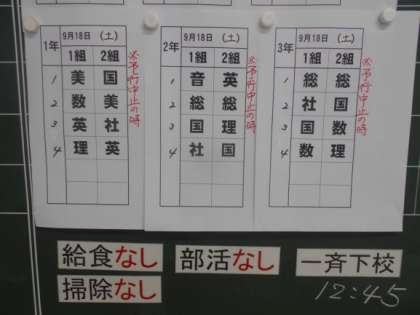 1年 9月18日 (土)
1組 2組
1 美 国
2 数 美
3 英 社
4 理 英
※予行中止の時
2年 9月18日 (土)
1組 2組
1 音 英
2 総 総
3 国 理
4 社 国
※予行中止の時
3年 9月18日 (土)
1組 2組
1 総 総
2 社 国
3 国 数
4 数 理
※予行中止の時
給食なし 部活なし 一斉下校
掃除なし 12:45